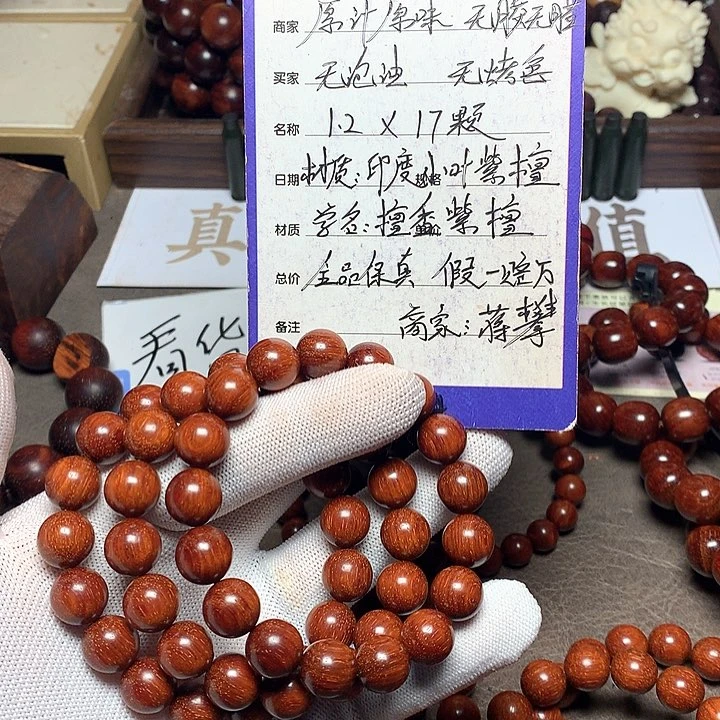 商家 原汁原味 无胶无腊
买家 无泡油 无烤色
名称 1.2 X 17颗
日期 材质:印度小叶紫檀
材质 学名:檀香紫檀
总价 全品保真 假一赔万
备注 商家:蒋攀
真 值
看货